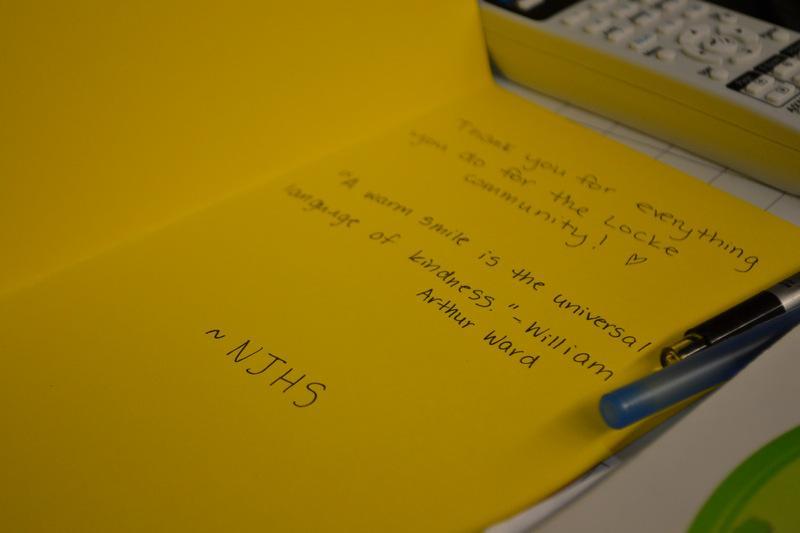 Thank you for everything
you do for the Locke
community! ♡
"A warm smile is the universal
language of kindness." - William
Arthur Ward
~ NJHS